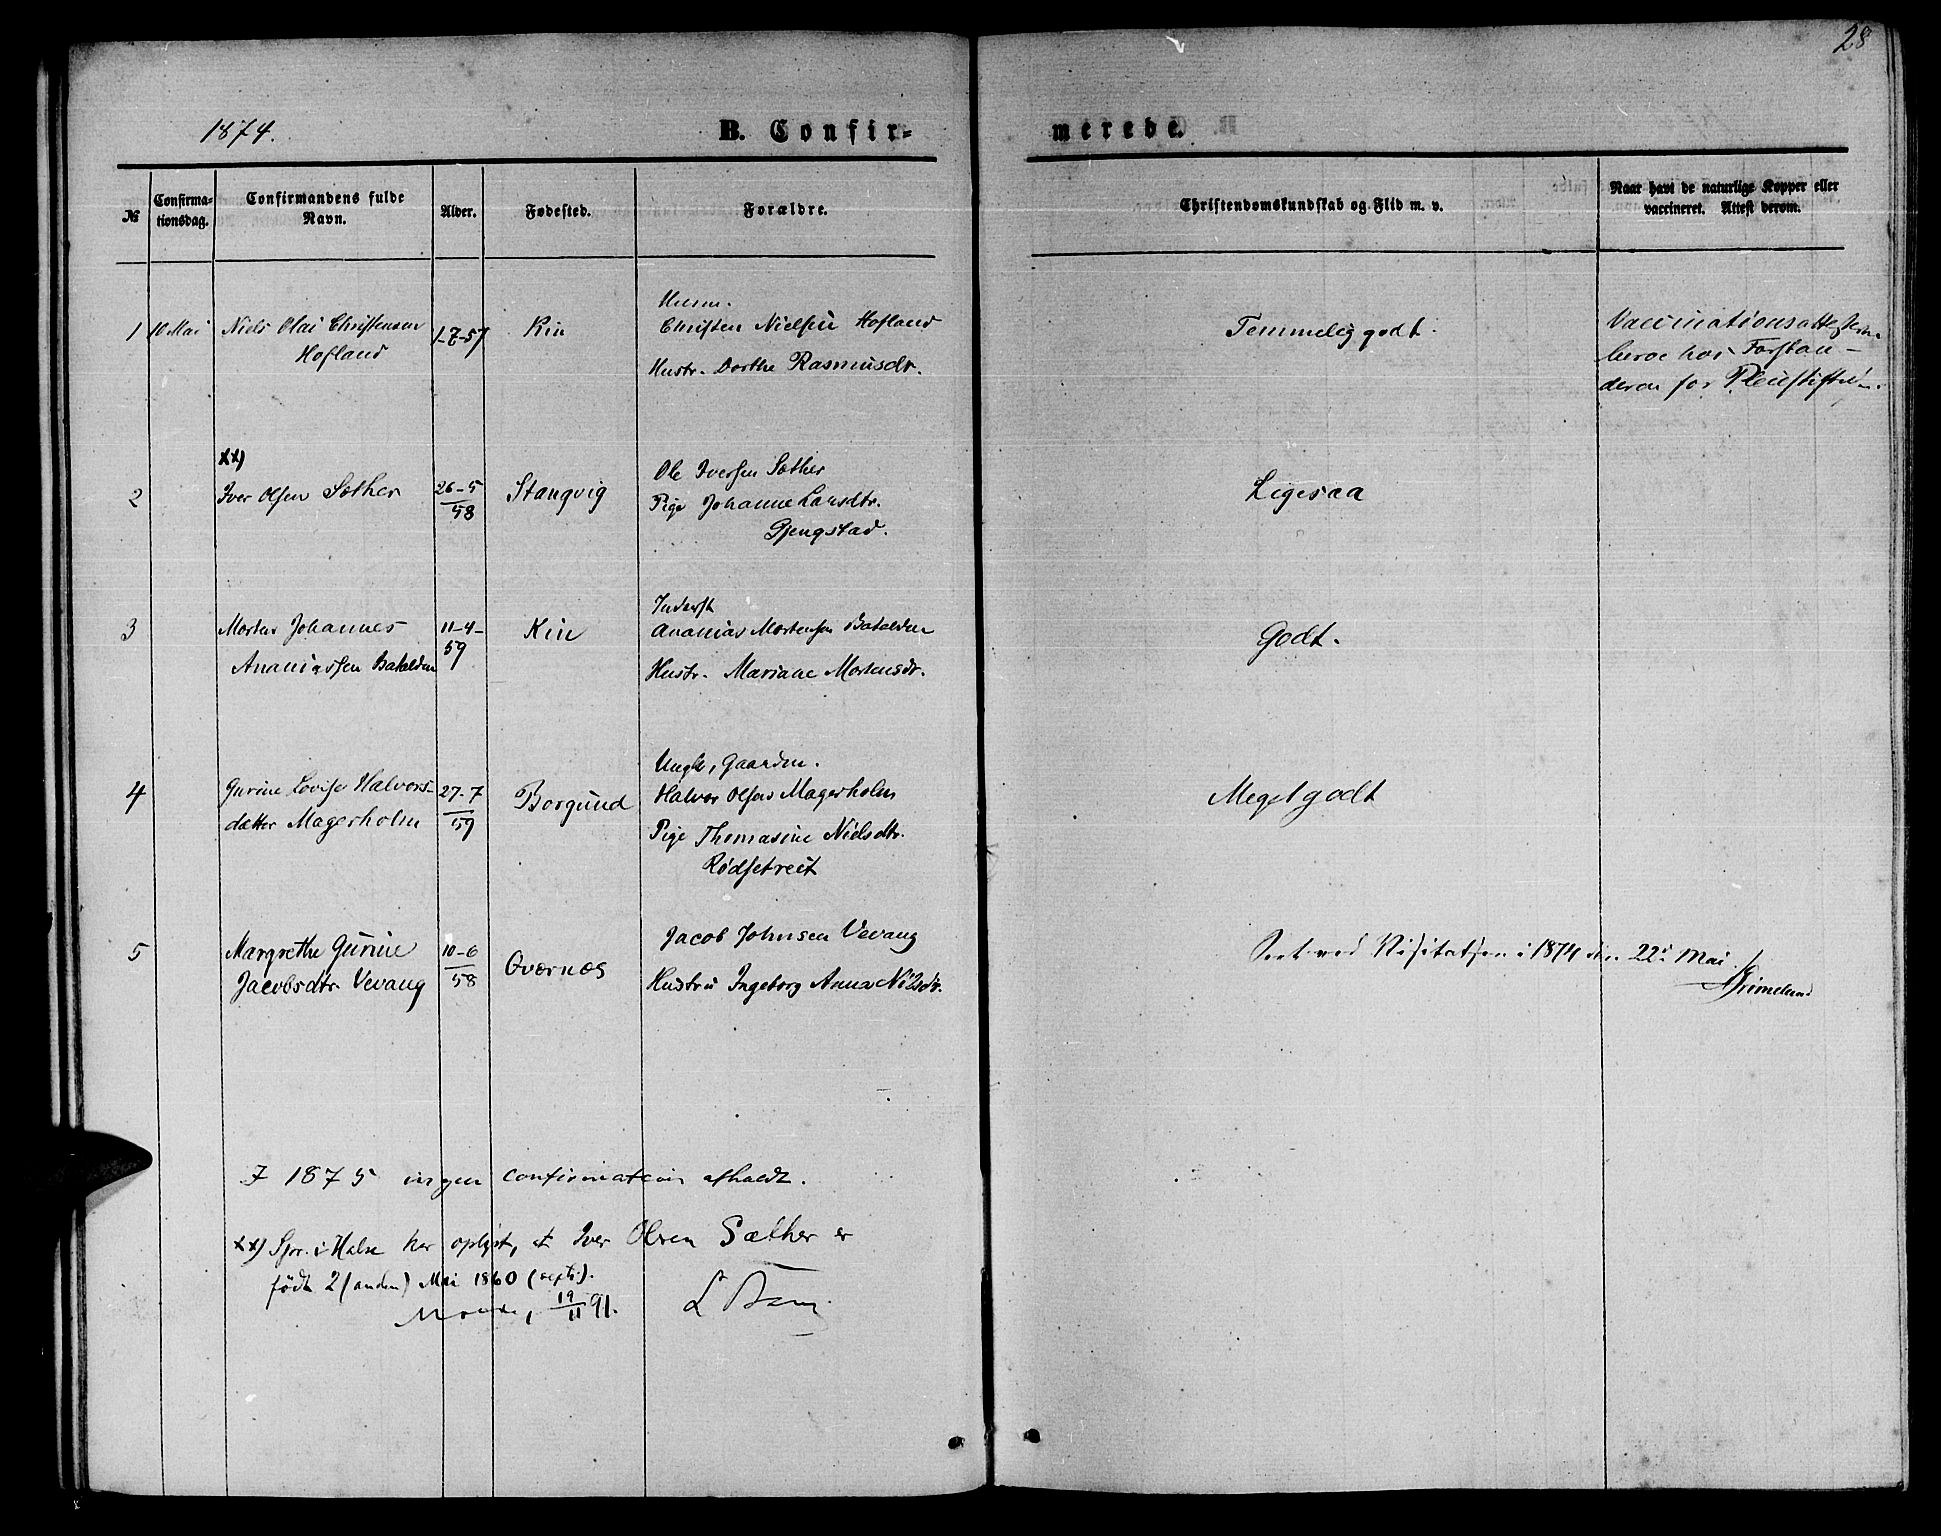 28
1874.
B. Confir-
merede.
№
Confirma-
tionsdag.
Confirmandens fulde
Navn.
Alder.
Fødested.
Forældre.
Christendomskundskab og Flid m. v.
Naar havt de naturlige Kopper eller
vaccineret. Attest derom.
1 10 Mai Niels Olai Christensen
Hofland
1-7-57
Kin
Husm.
Christen Nielsen Hofland
Hustr. Dorthe Rasmusdr.
Temmelig godt.
Vaccinationsattesterne
beroe hos Forstan-
deren for Pleiestiftelsen.
2
xx)
Iver Olsen Sæther
26-5
58
Stangvig
Ole Iversen Sæther
Pige Johanne Larsdtr.
Gjengstad.
Ligesaa
3
Morten Johannes
Ananiassen Batalden
11-4-
59
Kin
Inderst
Ananias Mortensen Batalden
Hustr. Mariane Mortensdr.
Godt.
4
Gurine Lovise Halvors-
datter Magerholm
27-7
59
Borgund
Ungk, Gaardm.
Halvor Olsen Magerholm
Pige Thomasine Nielsdtr.
Rødsetreit
Meget godt
5
Margrethe Gurine
Jacobsdtr Vevang
10-6
58
Qværnæs
Jacob Johnsen Vevang
Hustru Ingeborg Anna Nilsdr.
Seet ved Visitatsen i 1874 den 22de Mai
Grimelund
I 1875 ingen confirmation afholdt.
xx) Spr. i Halse har oplyst, at Iver Olsen Sæther er
født 2 (anden) Mai 1860 (septi).
Molde, 19/11 91.